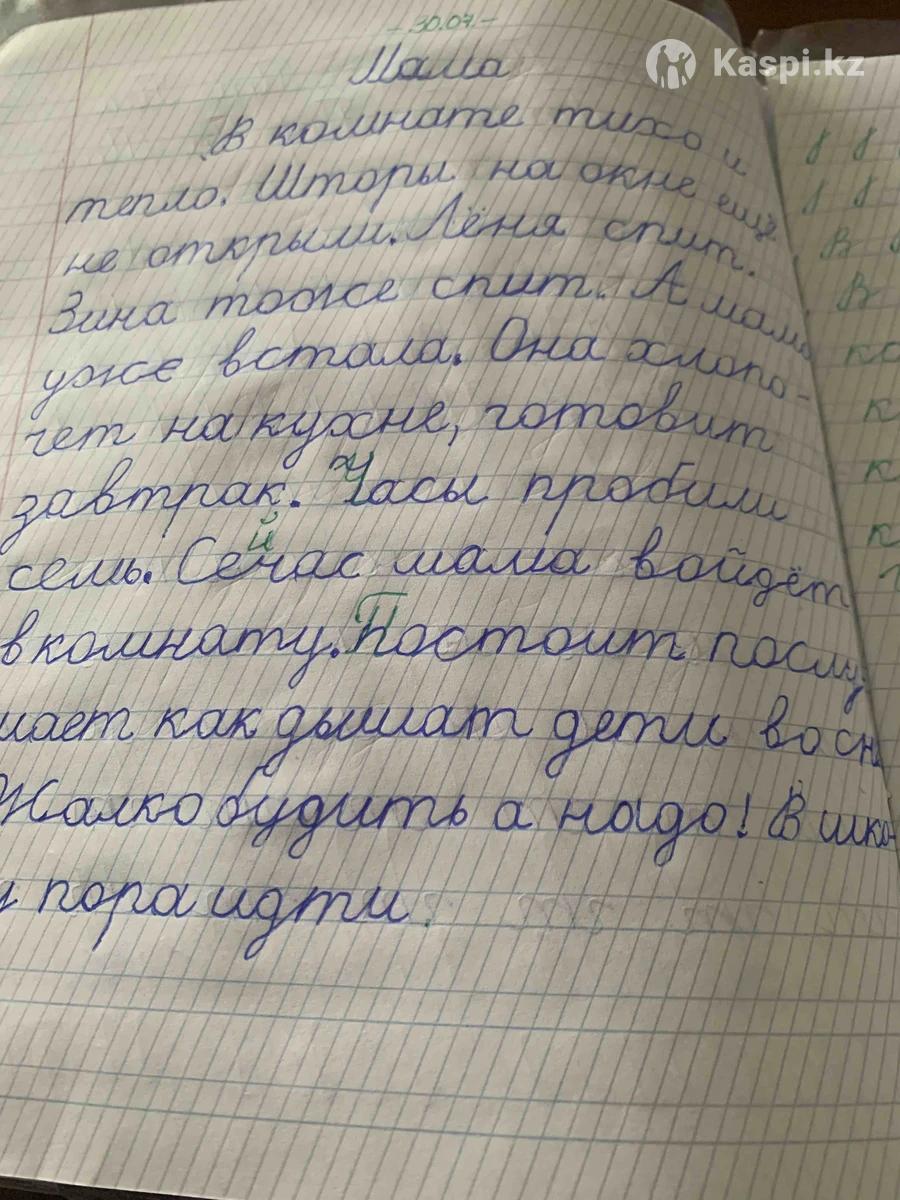 - 30.07. -
Kaspi.kz
Мама
В комнате тихо и
тепло. Шторы на окне ещё
не открыли. Лёня спит.
Зина тоже спит. А мама
уже встала. Она хлопо-
чет на кухне, готовит
завтрак. Часы пробили
семь. Сейчас мама войдёт
в комнату. Постоит послу
шает как дышат дети во сн
Жалко будить а надо! В шко-
у пора идти.